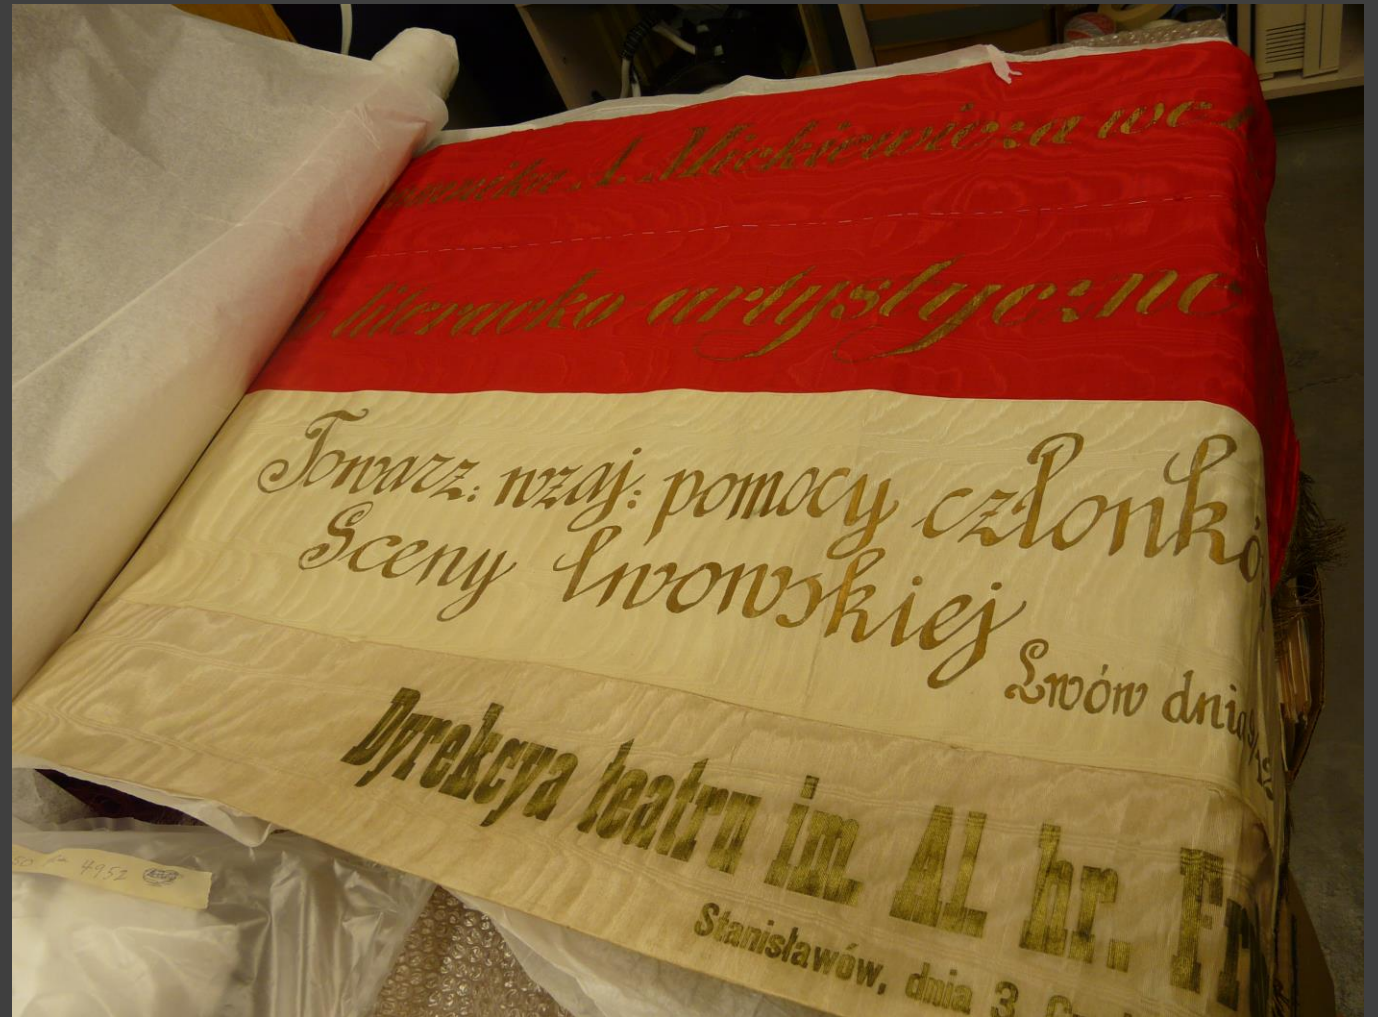 A. Mickiewicza we
literacko-artystyczne
Towarz: wzaj: pomocy członkó
Sceny lwowskiej
Lwów dnia
Dyrekcya teatru im. Al. hr. Fr
Stanisławów, dnia 3.
4952